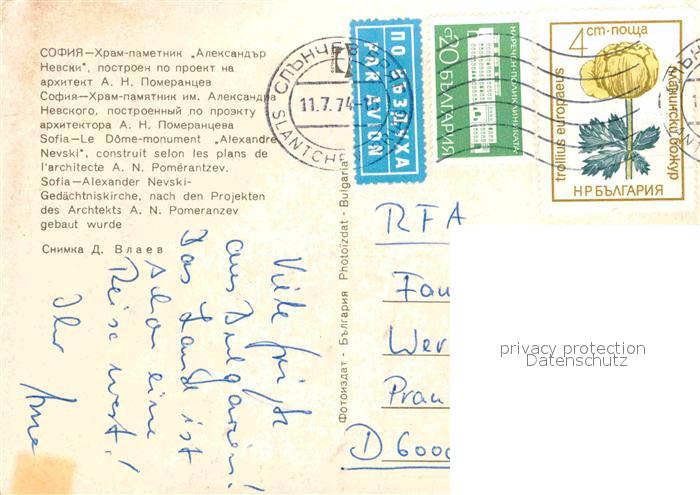 СОФИЯ—Храм-паметник „Александър
Невски", построен по проект на
архитект А. Н. Померанцев
София—Храм-памятник им. Александра
Невского, построенный по проэкту
архитектора А. Н. Померанцева
Sofia—Le Dôme-monument „Alexandre
Nevski", construit selon les plans de
l'architecte A. N. Pomérantzev.
Sofia—Alexander Nevski-
Gedächtniskirche, nach den Projekten
des Archtekts A. N. Pomeranzev
gebaut wurde
Снимка Д. Влаев
Viele Grüße
aus Bulgarien!
Das Land ist
schon eine
Reise wert!
Ihr
Фотоиздат - България Photoizdat - Bulgaria
СЛЪНЧЕВ БРЯГ
11.7.74
SLANTCHEV
ПО ВЪЗДУХА
PAR AVION
СТ 20 БЪЛГАРИЯ
4 СТ·ПОЩА
trollius europaeus
НР БЪЛГАРИЯ
RFA
Fau
Wer
D 6000
privacy protection
Datenschutz